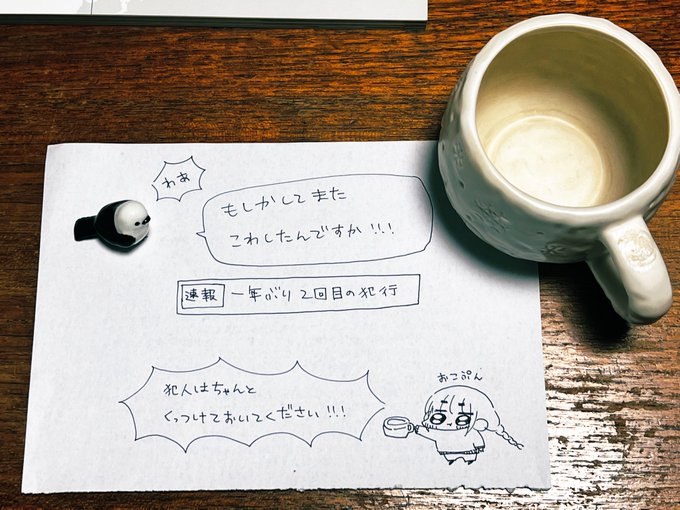 わぁ
もしかして また
こわしたんですか!!!
速報 一年ぶり 2回目の犯行
犯人はちゃんと
くっつけておいてください!!!
おこぷん